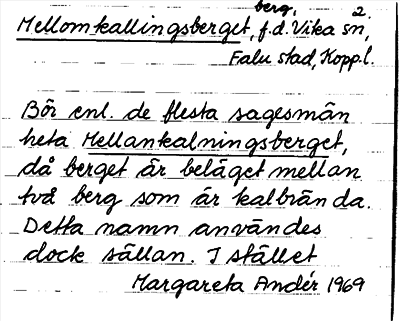 berg, 2.
Mellomkallingsberget, f.d. Vika sn,
Falu stad, Koppl.
Bör enl. de flesta sagesmän
heta Mellankalningsberget,
då berget är beläget mellan
två berg som är kalbrända.
Detta namn användes
dock sällan. I stället
Margareta Andér 1969